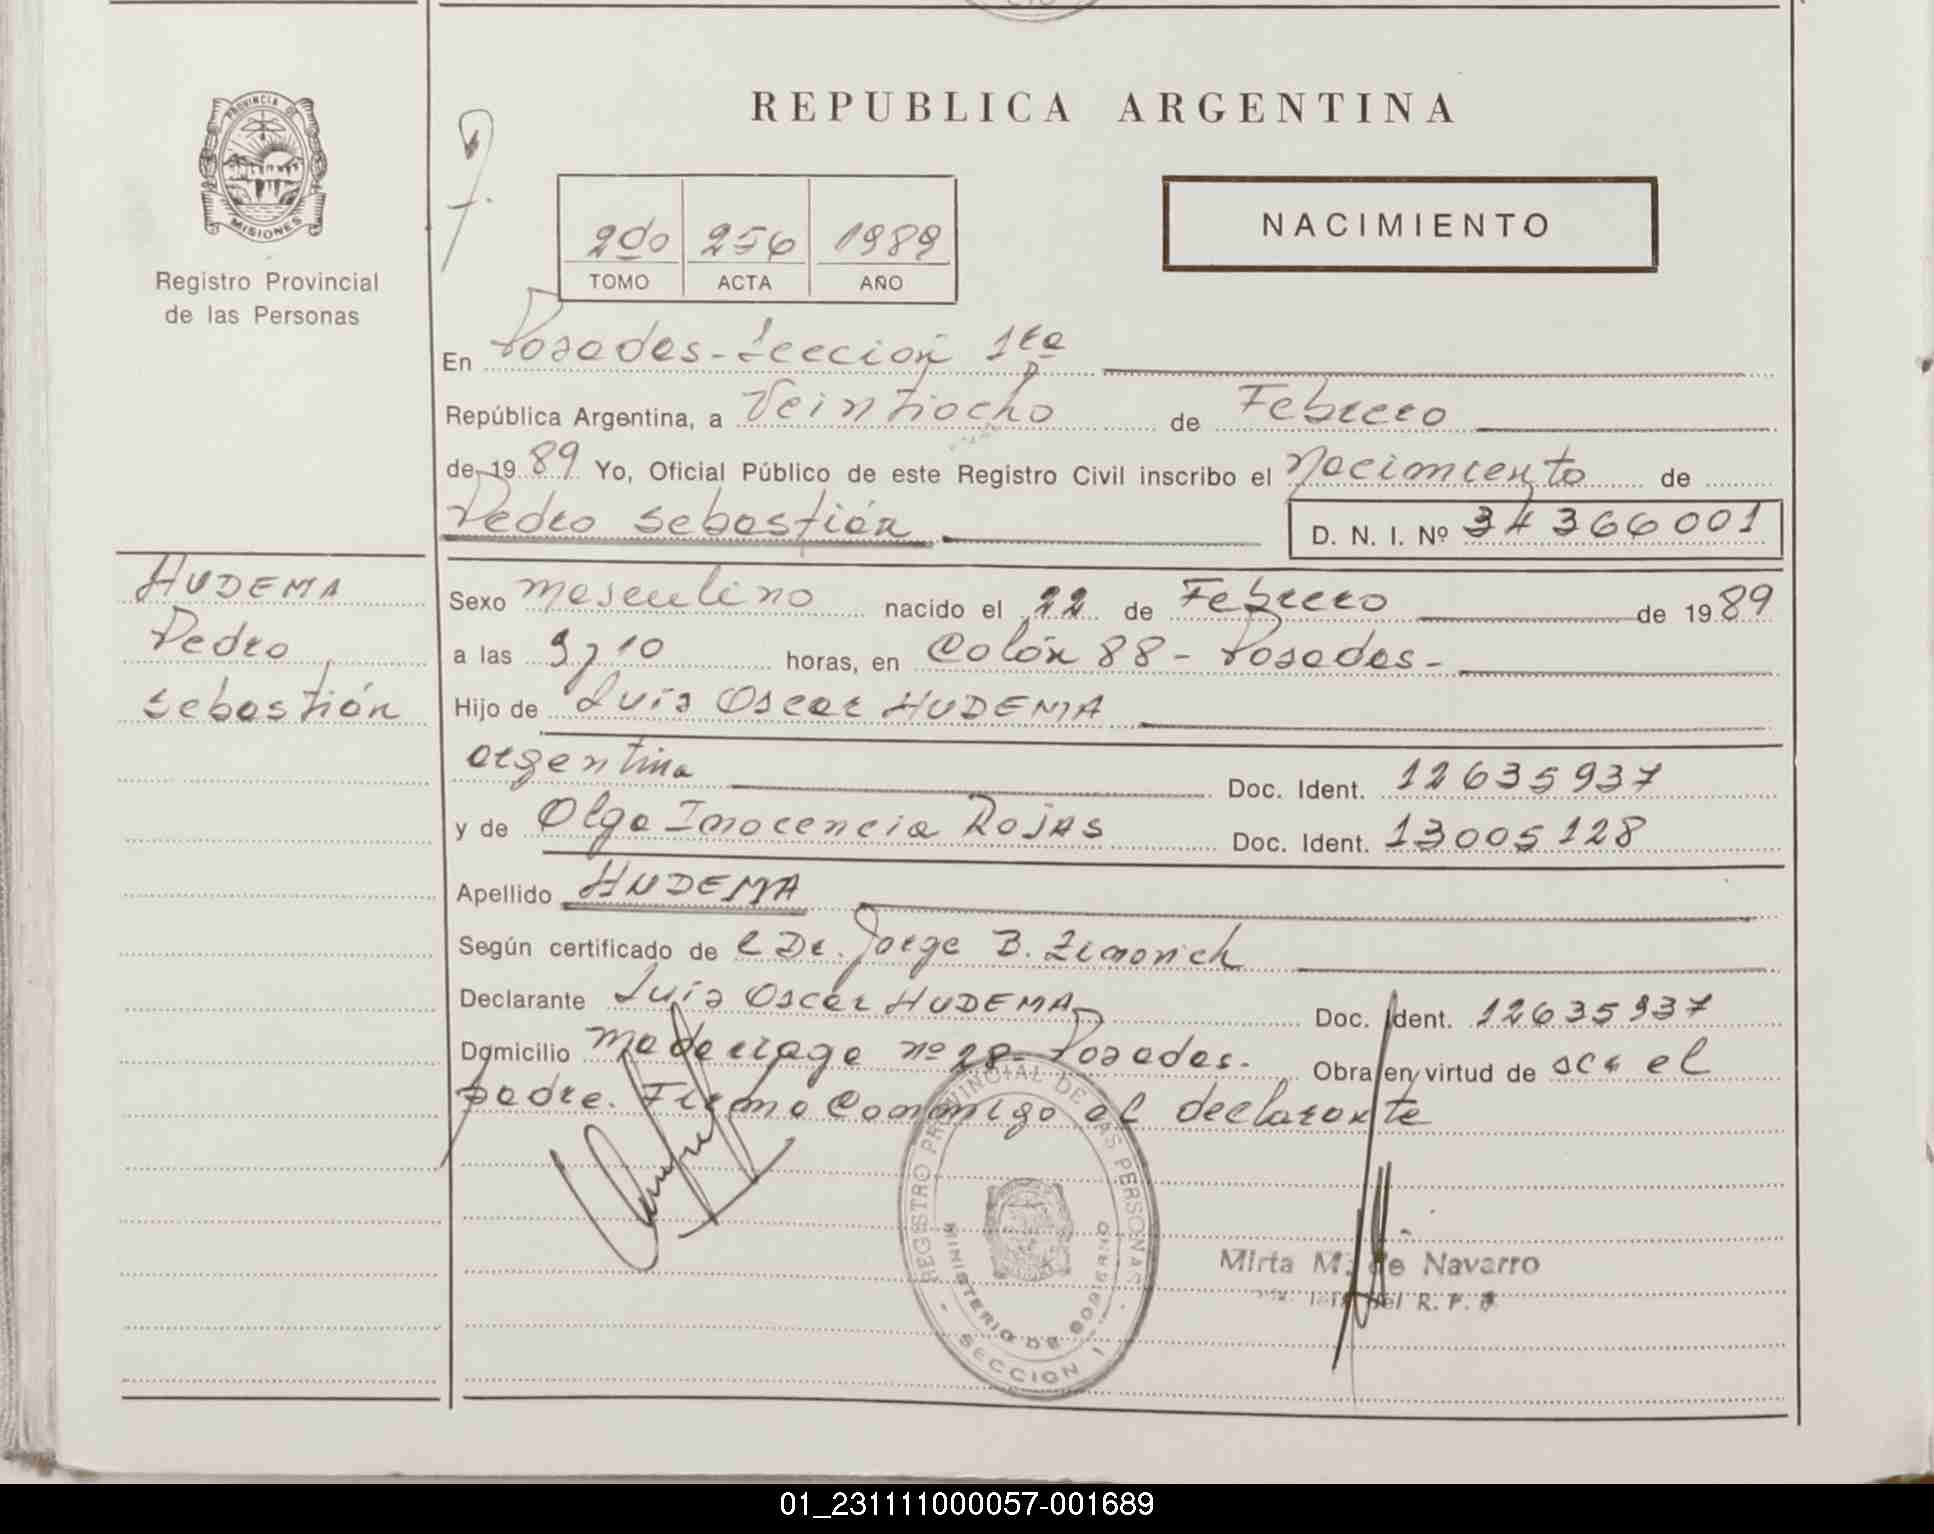 REPUBLICA ARGENTINA
PROVINCIA DE
MISIONES
Registro Provincial
de las Personas
NACIMIENTO
2do 256 1989
TOMO ACTA AÑO
En Posadas - Sección 1ra
República Argentina, a Veintiocho de Febrero
de 19 89 Yo, Oficial Público de este Registro Civil inscribo el Nacimiento de
Pedro Sebastián D. N. I. Nº 34366001
HUDEMA
Pedro
Sebastián
Sexo Masculino nacido el 22 de Febrero de 19 89
a las 9 y 10 horas, en Colón 88 - Posadas -
Hijo de Luis Oscar HUDEMA
argentina Doc. Ident. 12635937
y de Olga Inocencia Rojas Doc. Ident. 13005128
Apellido HUDEMA
Según certificado de el Dr. Jorge B.
Declarante Luis Oscar HUDEMA Doc. Ident. 12635937
Domicilio Madariaga nº 28 - Posadas. Obra en virtud de ser el
padre. Firma Conmigo el declarante
REGISTRO PROVINCIAL DE LAS PERSONAS
MINISTERIO DE GOBIERNO
SECCION 1
Mirta M. de Navarro
del R. P.
01_231111000057-001689